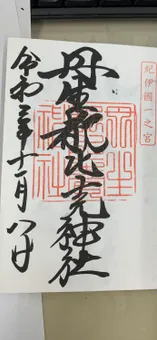 紀伊國一之宮
丹生都比売神社
令和三年十一月八日